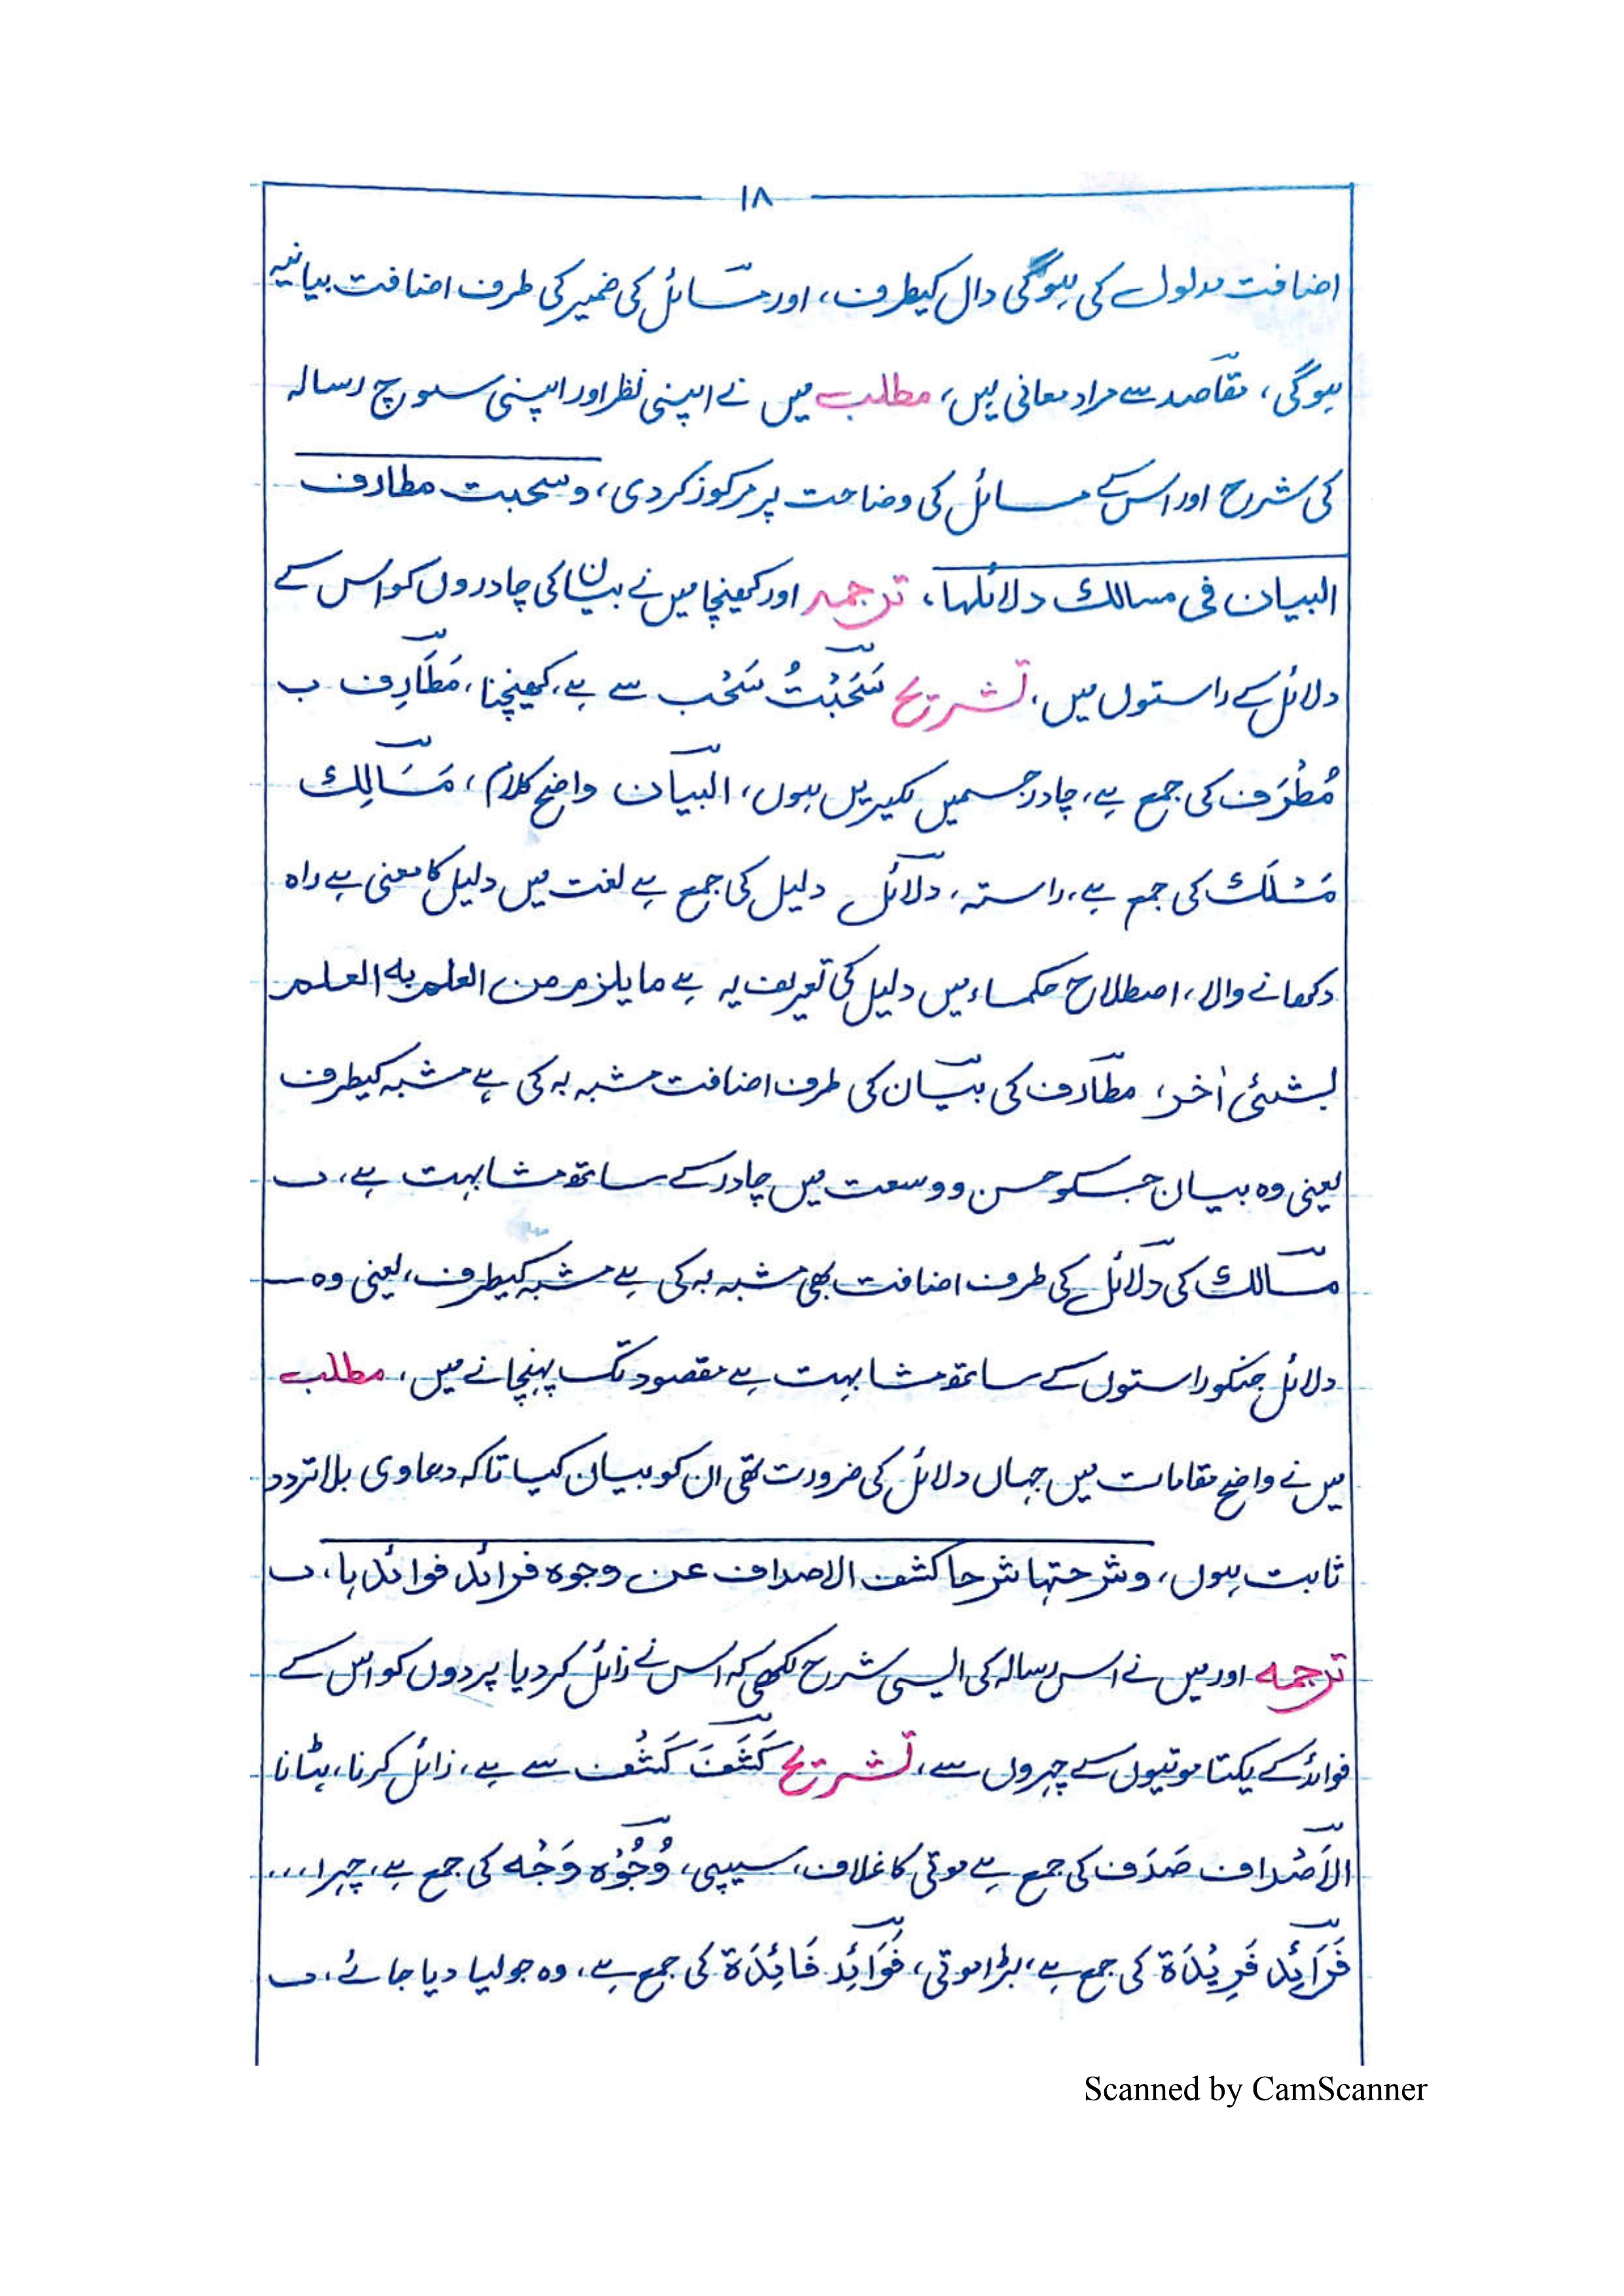 ۱۸
اضافت مدلول کی ہوگی دال کیطرف، اور مسائل کی ضمیر کی طرف اضافت بیانیہ
ہوگی، مقاصد سے مراد معانی ہیں، مطلب میں نے اپنی نظر اور اپنی سوچ رسالہ
کی شرح اور اس کے مسائل کی وضاحت پر مرکوز کردی، وسحبت مطارف
البیان فی مسالک دلائلہا، ترجمہ اور کھینچا میں نے بیان کی چادروں کو اس کے
دلائل کے راستوں میں، تشریح سَحَبْتُ سَحْب سے ہے، کھینچنا، مَطَارِف
مُطْرَف کی جمع ہے، چادر جسمیں لکیریں ہوں، البیان واضح کلام، مَسَالِک
مَسْلَک کی جمع ہے، راستہ، دلائل دلیل کی جمع ہے لغت میں دلیل کا معنی ہے راہ
دکھانے والا، اصطلاح حکماء میں دلیل کی تعریف یہ ہے مایلزم من العلم بہ العلم
بشئی اٰخر، مطارف کی بیان کی طرف اضافت مشبہ بہ کی ہے مشبہ کیطرف
یعنی وہ بیان جسکو حسن و وسعت میں چادر کے ساتھ مشابہت ہے،
مسالک کی دلائل کی طرف اضافت بھی مشبہ بہ کی ہے مشبہ کیطرف، یعنی وہ
دلائل جنکو راستوں کے ساتھ مشابہت ہے مقصود تک پہنچانے میں، مطلب
میں نے واضح مقامات میں جہاں دلائل کی ضرورت تھی ان کو بیان کیا تاکہ دعاوی بلا تردد
ثابت ہوں، وشرحتہا شرحا کشف الاصداف عن وجوہ فرائد فوائدہا،
ترجمہ اور میں نے اس رسالہ کی ایسی شرح لکھی کہ اس نے زائل کردیا پردوں کو اس کے
فوائد کے یکتا موتیوں کے چہروں سے، تشریح کَشَفَ کَشْف سے ہے، زائل کرنا، ہٹانا
الاَصْداف صَدَف کی جمع ہے موتی کا غلاف، سیپی، وُجُوْہ وَجْہ کی جمع ہے، چہرا ...
فَرَائِد فَرِیْدَۃ کی جمع ہے، بڑا موتی، فَوَائِد فَائِدَۃ کی جمع ہے، وہ جو لیا دیا جائے،
Scanned by CamScanner